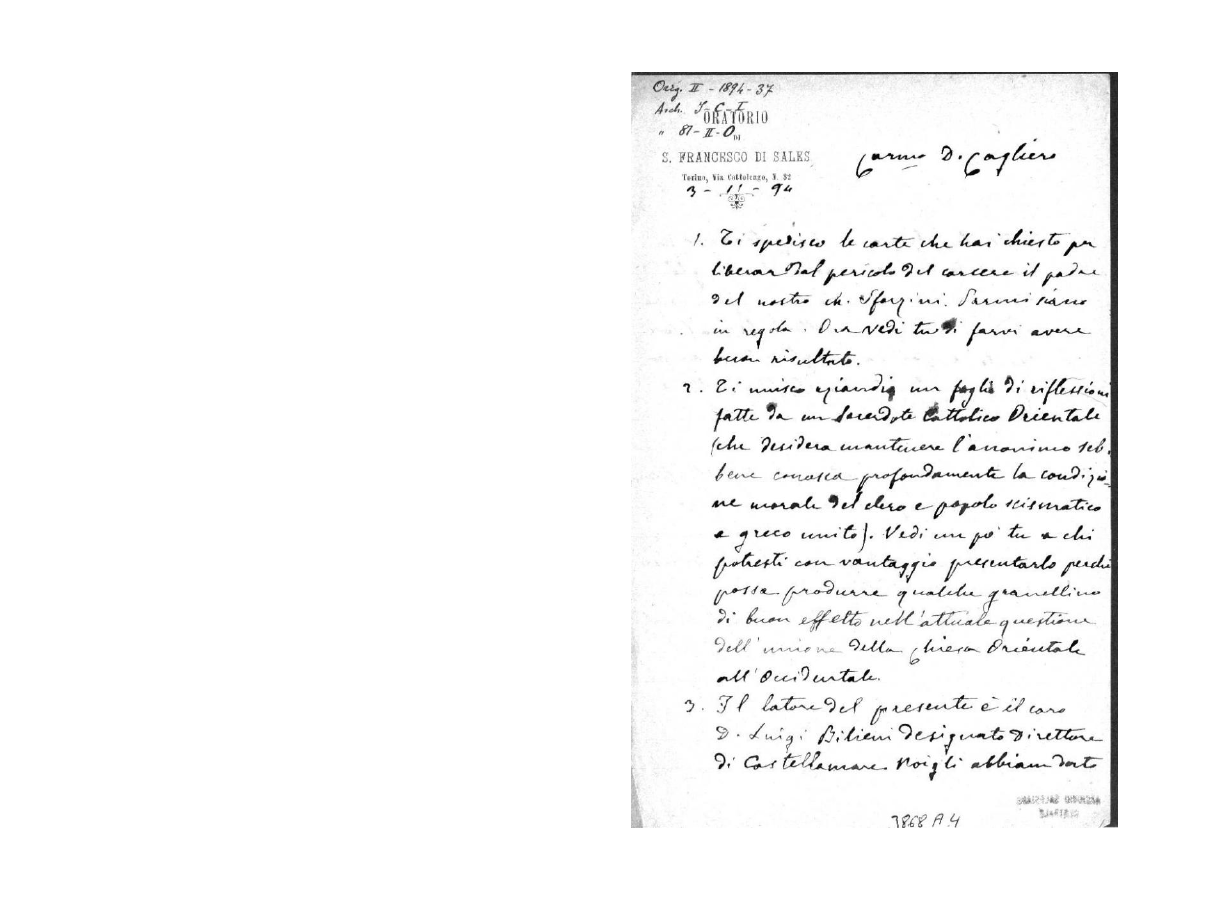 Orig. II - 1894 - 37
Arch. I - C - I
ORATORIO
" 81 - II - O
DI
S. FRANCESCO DI SALES
Torino, Via Cottolengo, N. 32
3 - 11 - 94
Carmo D. Cagliero
1. Ti spedisco le carte che hai chiesto per
liberar dal pericolo del carcere il padre
del nostro ch. Sforzini. Parmi siano
in regola. Ora vedi tu di farvi avere
buon risultato.
2. Ti unisco eziandio un foglio di riflessioni
fatte da un Sacerdote Cattolico Orientale
(che desidera mantenere l'anonimo seb-
bene conosca profondamente la condizio-
ne morale del clero e popolo scismatico
e greco unito). Vedi un po' tu a chi
potresti con vantaggio presentarlo perchè
possa produrre qualche granellino
di buon effetto nell'attuale questione
dell'unione della Chiesa Orientale
all'Occidentale.
3. Il latore del presente è il caro
D. Luigi Bilieni designato Direttore
di Castellamare. Noi gli abbiam dato
ARCHIVIO SALESIANO
CENTRALE
3868 A 4